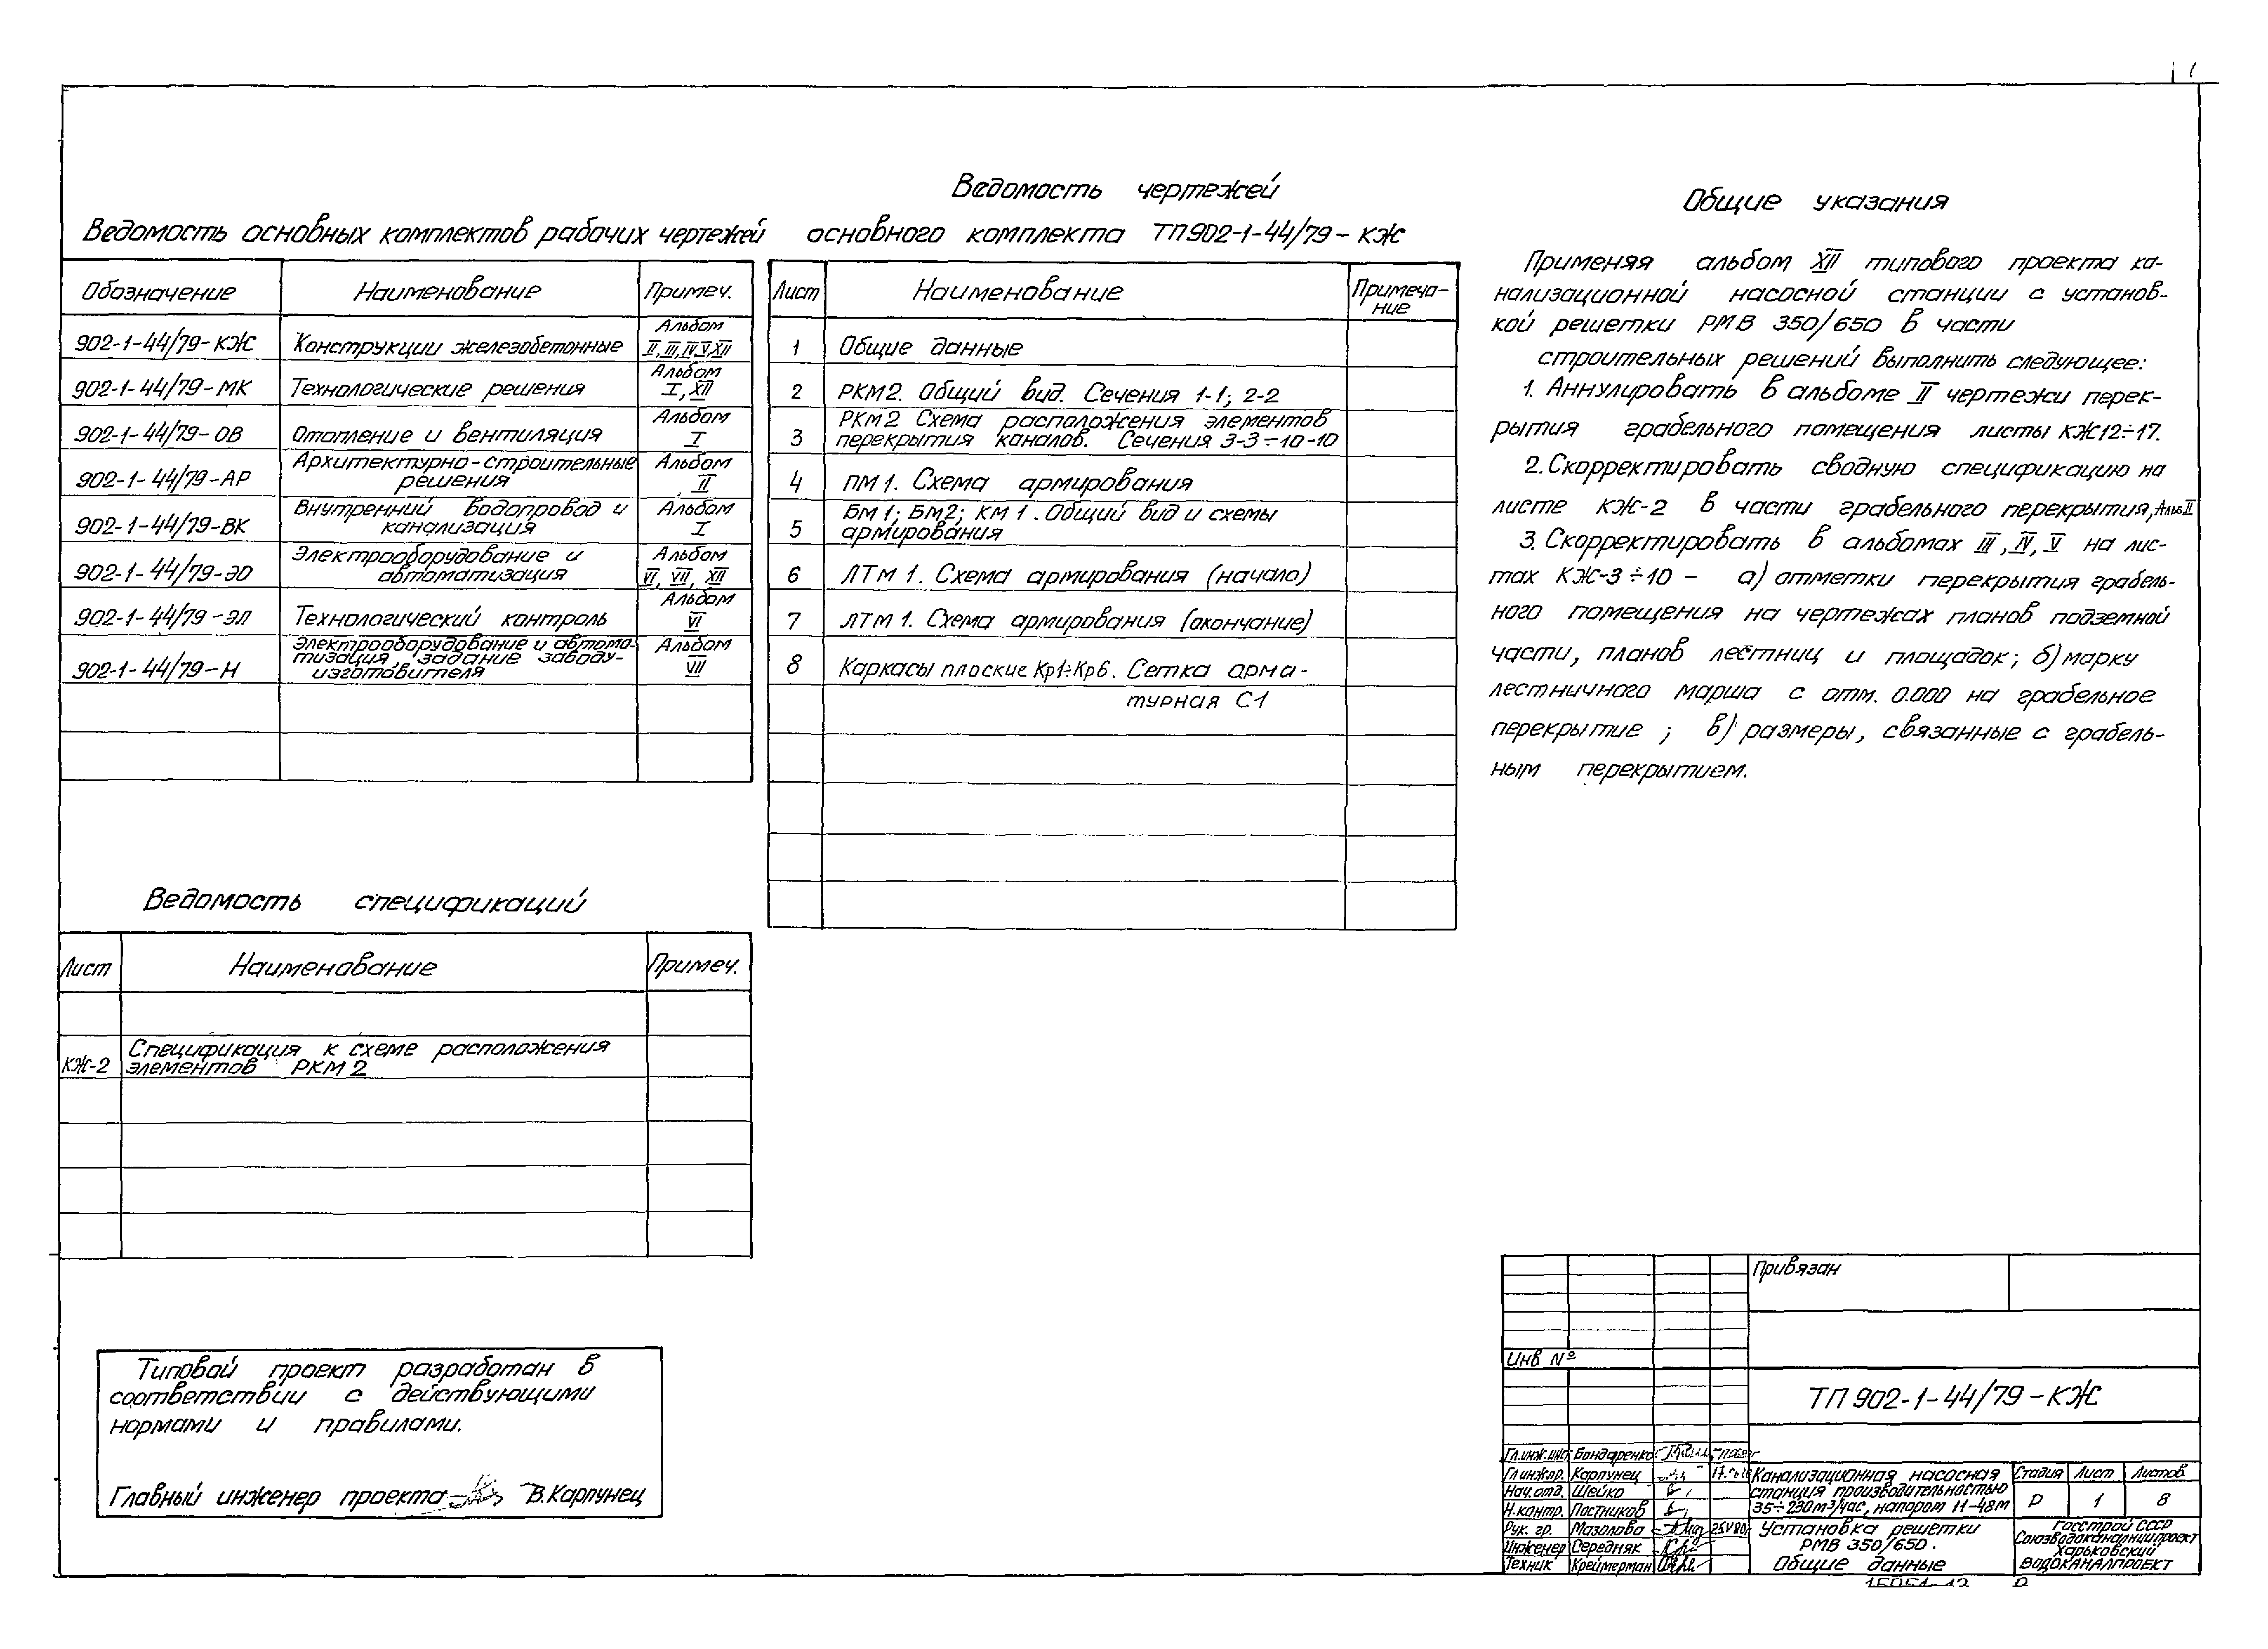 Ведомость основных комплектов рабочих чертежей
Обозначение Наименование Примеч.
902-1-44/79-КЖ Конструкции железобетонные Альбом II, III, IV, V, XII
902-1-44/79-МК Технологические решения Альбом I, XII
902-1-44/79-ОВ Отопление и вентиляция Альбом I
902-1-44/79-АР Архитектурно-строительные решения Альбом II
902-1-44/79-ВК Внутренний водопровод и канализация Альбом I
902-1-44/79-ЭО Электрооборудование и автоматизация Альбом VI, VII, XII
902-1-44/79-ЭЛ Технологический контроль Альбом VI
902-1-44/79-Н Электрооборудование и автоматизация, задание заводу-изготовителя Альбом VII
Ведомость чертежей
основного комплекта ТП902-1-44/79-КЖ
Лист Наименование Примечание
1 Общие данные
2 РКМ2. Общий вид. Сечения 1-1; 2-2
3 РКМ2 Схема расположения элементов
перекрытия каналов. Сечения 3-3÷10-10
4 ПМ1. Схема армирования
5 БМ1; БМ2; КМ1. Общий вид и схемы
армирования
6 ЛТМ1. Схема армирования (начало)
7 ЛТМ1. Схема армирования (окончание)
8 Каркасы плоские Кр1÷Кр6. Сетка арма-
турная С1
Общие указания
Применяя альбом XII типового проекта ка-
нализационной насосной станции с установ-
кой решетки РМВ 350/650 в части
строительных решений выполнить следующее:
1. Аннулировать в альбоме II чертежи перек-
рытия грабельного помещения листы КЖ12÷17.
2. Скорректировать сводную спецификацию на
листе КЖ-2 в части грабельного перекрытия, Альб. II
3. Скорректировать в альбомах III, IV, V на лис-
тах КЖ-3÷10 - а) отметки перекрытия грабель-
ного помещения на чертежах планов подземной
части, планов лестниц и площадок; б) марку
лестничного марша с отм. 0.000 на грабельное
перекрытие; в) размеры, связанные с грабель-
ным перекрытием.
Ведомость спецификаций
Лист Наименование Примеч.
КЖ-2 Спецификация к схеме расположения
элементов РКМ2
Типовой проект разработан в
соответствии с действующими
нормами и правилами.
Главный инженер проекта В.Карпунец
Привязан
Инв №
ТП 902-1-44/79-КЖ
Гл.инж.инс Бондаренко
Гл.инж.пр. Карпунец
Нач.отд. Шейко
Н.контр. Постников
Рук. гр. Мазалова
Инженер Середняк
Техник Креймерман
Канализационная насосная
станция производительностью
35÷230м³/час, напором 11-48м
Стадия Лист Листов
Р 1 8
Установка решетки
РМВ 350/650.
Общие данные
Госстрой СССР
Союзводоканалниипроект
Харьковский
ВОДОКАНАЛПРОЕКТ